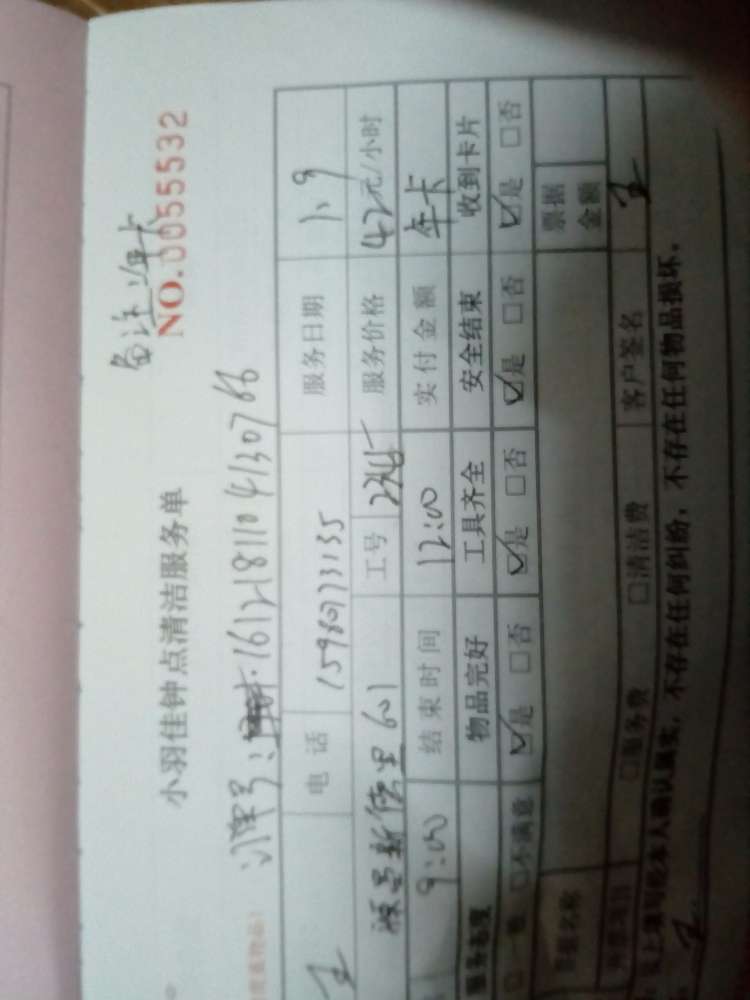 备注:年卡
小羽佳钟点清洁服务单 NO.0055532
订单号: 1612181104130766
电话 15980973135 服务日期 1.9
601 工号 服务价格 42元/小时
9:00 结束时间 12:00 实付金额 年卡
服务态度 物品完好 工具齐全 安全结束 收到卡片
□一般 □不满意 ☑是 □否 ☑是 □否 ☑是 □否 ☑是 □否
票据金额
□服务费 □清洁费 客户签名
以上填写经本人确认属实,不存在任何纠纷,不存在任何物品损坏。